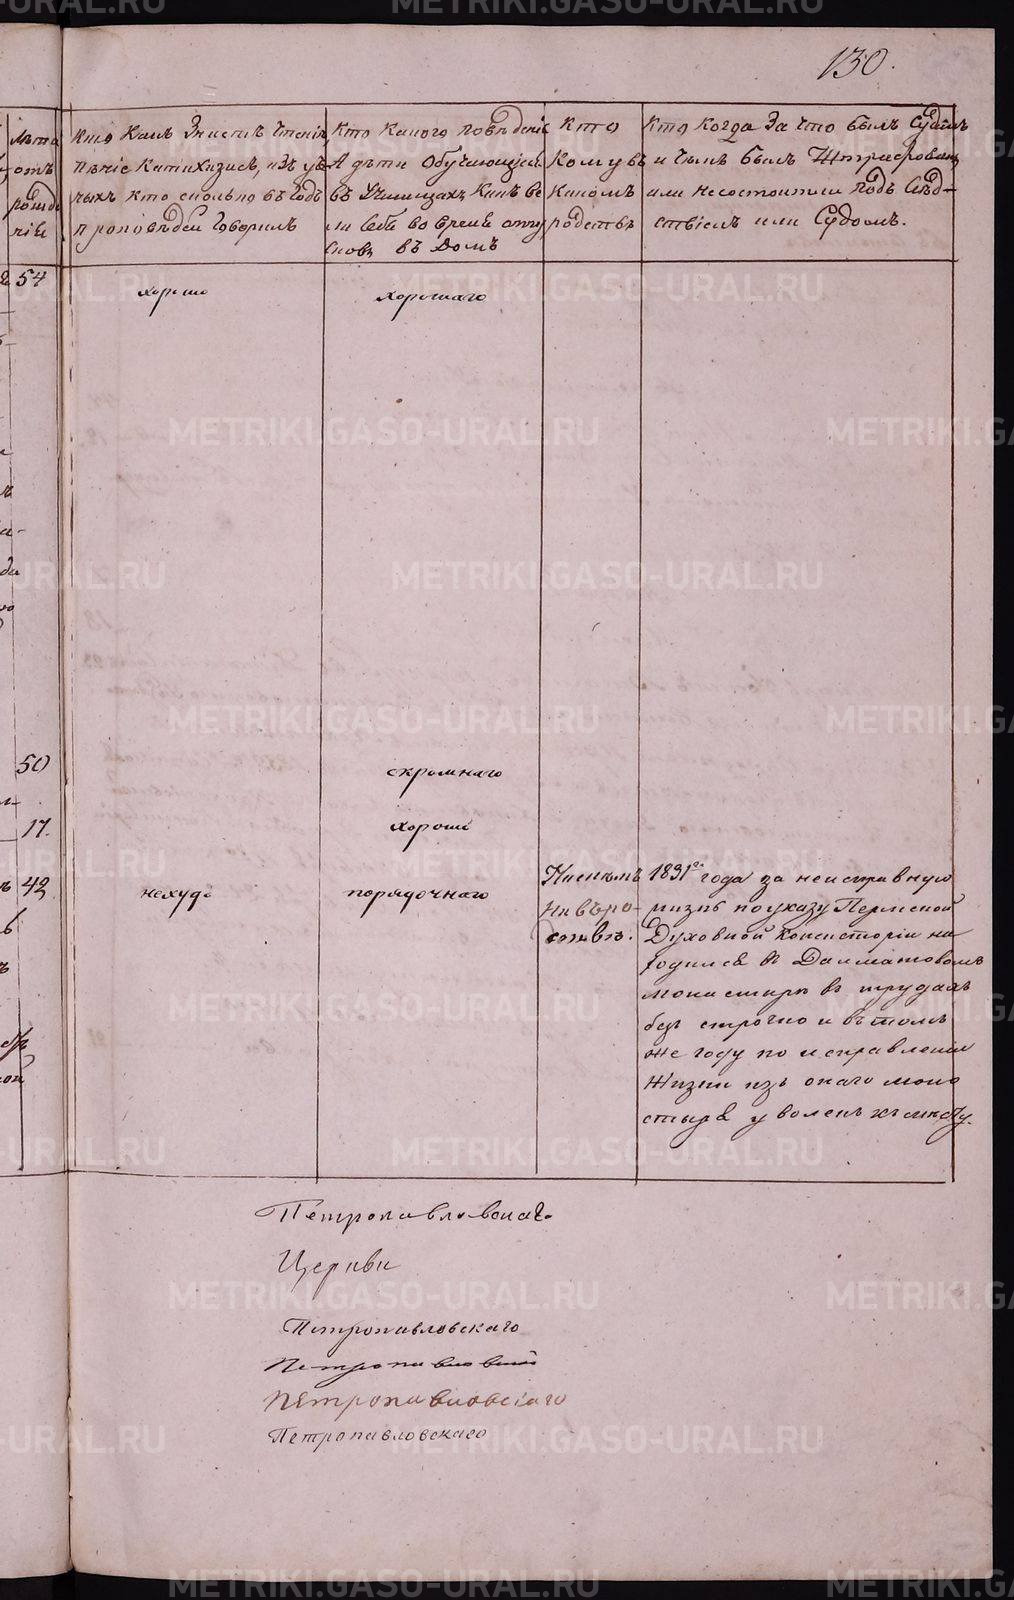 130.
Лѣта
отъ
рожде
нія
Кто какъ знаетъ чтеніе,
пѣніе катихизисъ, изъ уче
ныхъ кто сколько въ годъ
проповѣдей говорилъ
Кто какого поведенія
А дѣти обучающіеся
въ Училищахъ, какъ ве
ли себя во время отпу
сковъ въ домъ
Кто
кому въ
какомъ
родствѣ
Кто когда за что былъ судимъ
и чѣмъ былъ Штрафованъ,
или не состоитъ ли подъ слѣд-
ствіемъ или Судомъ.
54
хорошо
хорошаго
50
скромнаго
17.
хороша
42
нехудо
порядочнаго
1831го года за неисправную
жизнь по указу Пермской
Духовной Консисторіи на
ходился въ Далматовомъ
монастырѣ въ трудахъ
безъ срочно и въ томъ
же году по исправленіи
жизни изъ онаго мона
стыря уволенъ къ мѣсту.
Петропавловскаго
Церкви
Петропавловскаго
Петропавловской
Петропавловскаго
Петропавловскаго
METRIKI.GASO-URAL.RU